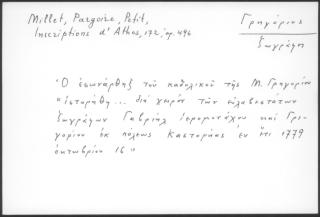 Millet, Pargoire, Petit,
Inscriptions d'Athos, 172, ἀρ. 496
Γρηγόριος
ζωγράφος
Ὁ ἐσωνάρθηξ τοῦ καθολικοῦ τῆς Μ. Γρηγορίου
"ἱστορήθη... διὰ χειρὸς τῶν εὐλαβεστάτων
ζωγράφων Γαβριὴλ ἱερομονάχου καὶ Γρη-
γορίου ἐκ πόλεως Καστορίας ἐν ἔτει 1779
ὀκτωβρίου 16"